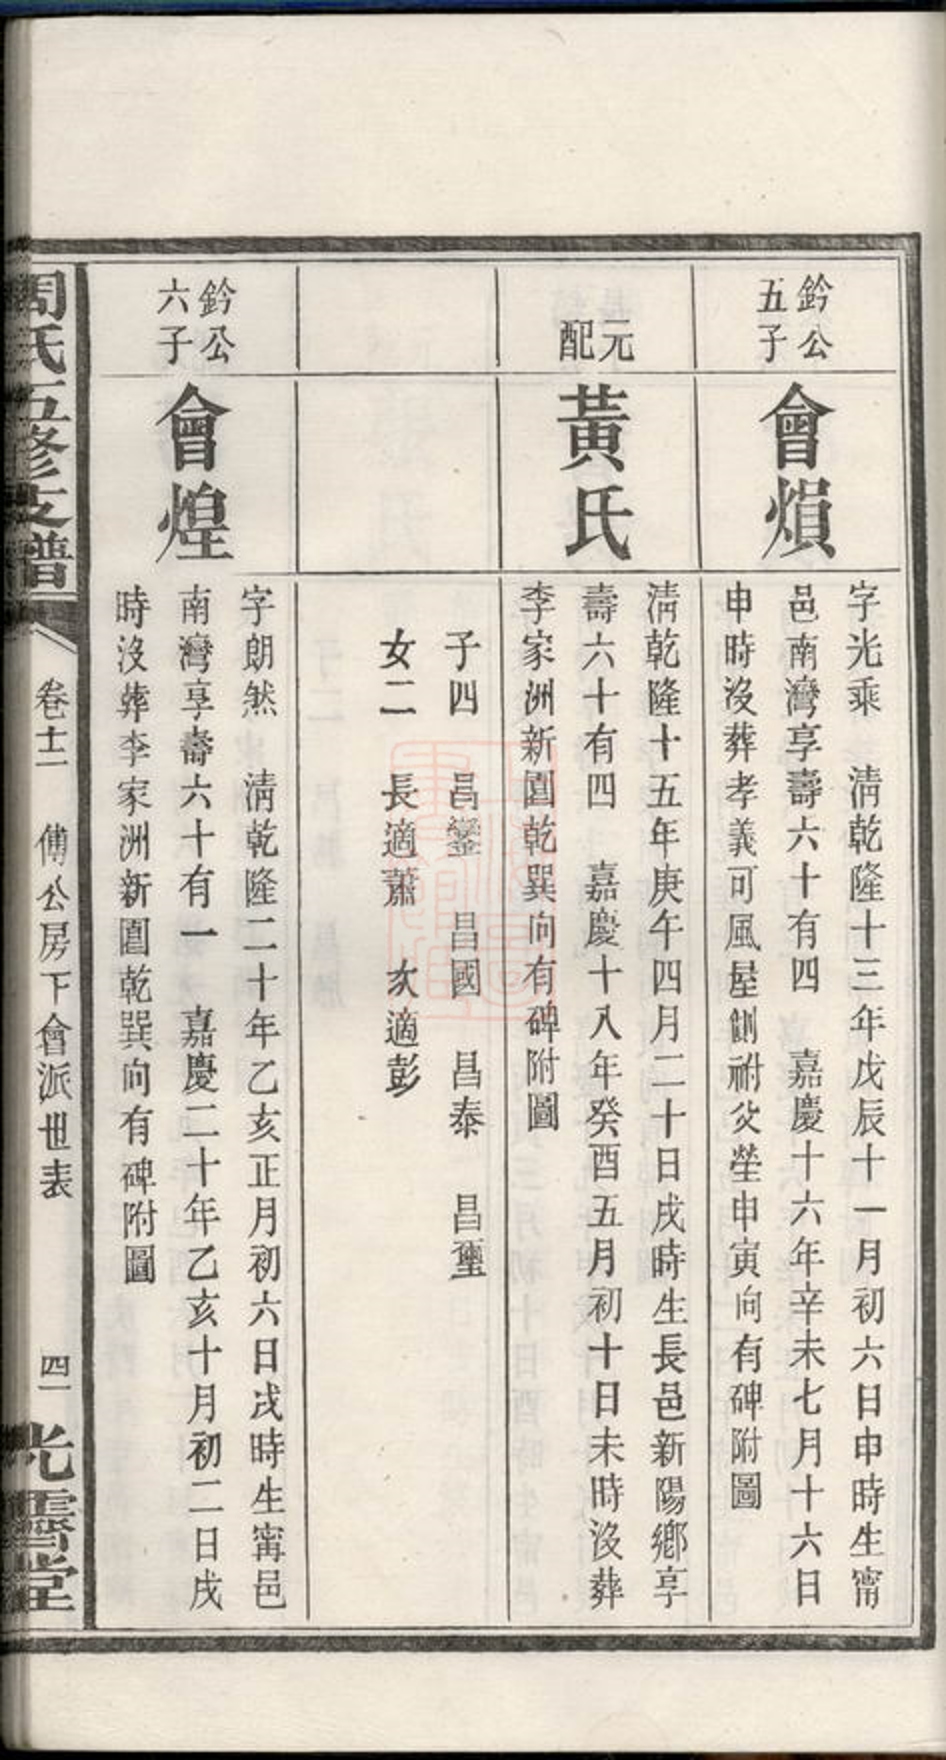 鈐公
五子
會熉
字光乘　清乾隆十三年戊辰十一月初六日申時生甯
邑南灣享壽六十有四　嘉慶十六年辛未七月十六日
申時沒葬孝義可風屋側祔父塋申寅向有碑附圖
元
配
黃氏
清乾隆十五年庚午四月二十日戌時生長邑新陽鄉享
壽六十有四　嘉慶十八年癸酉五月初十日未時沒葬
李家洲新圓乾巽向有碑附圖
子四　昌鑾　昌國　昌泰　昌璽
女二　長適蕭　次適彭
鈐公
六子
會煌
字朗然　清乾隆二十年乙亥正月初六日戌時生甯邑
南灣享壽六十有一　嘉慶二十年乙亥十月初二日戌
時沒葬李家洲新圓乾巽向有碑附圖
周氏五修支譜
卷十二　傅公房下會派世表　四一
光霽堂